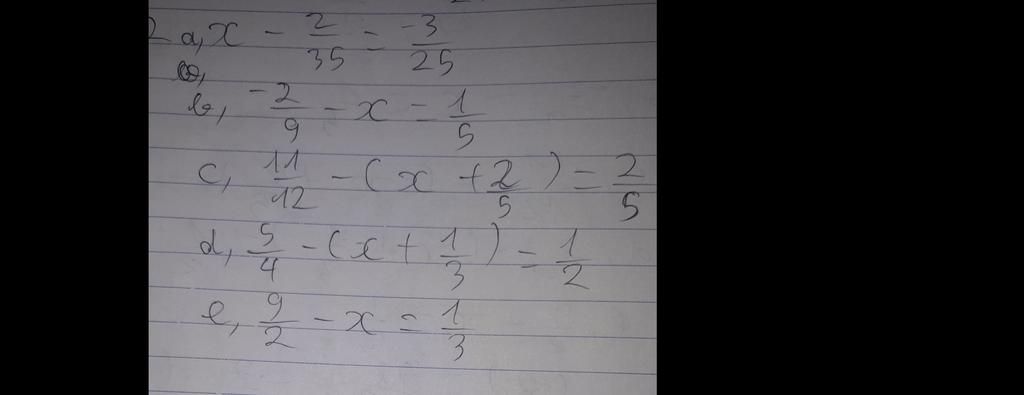 2 a, x - 2/35 = -3/25
b, -2/9 - x = 1/5
c, 11/12 - (x + 2/5) = 2/5
d, 5/4 - (x + 1/3) = 1/2
e, 9/2 - x = 1/3